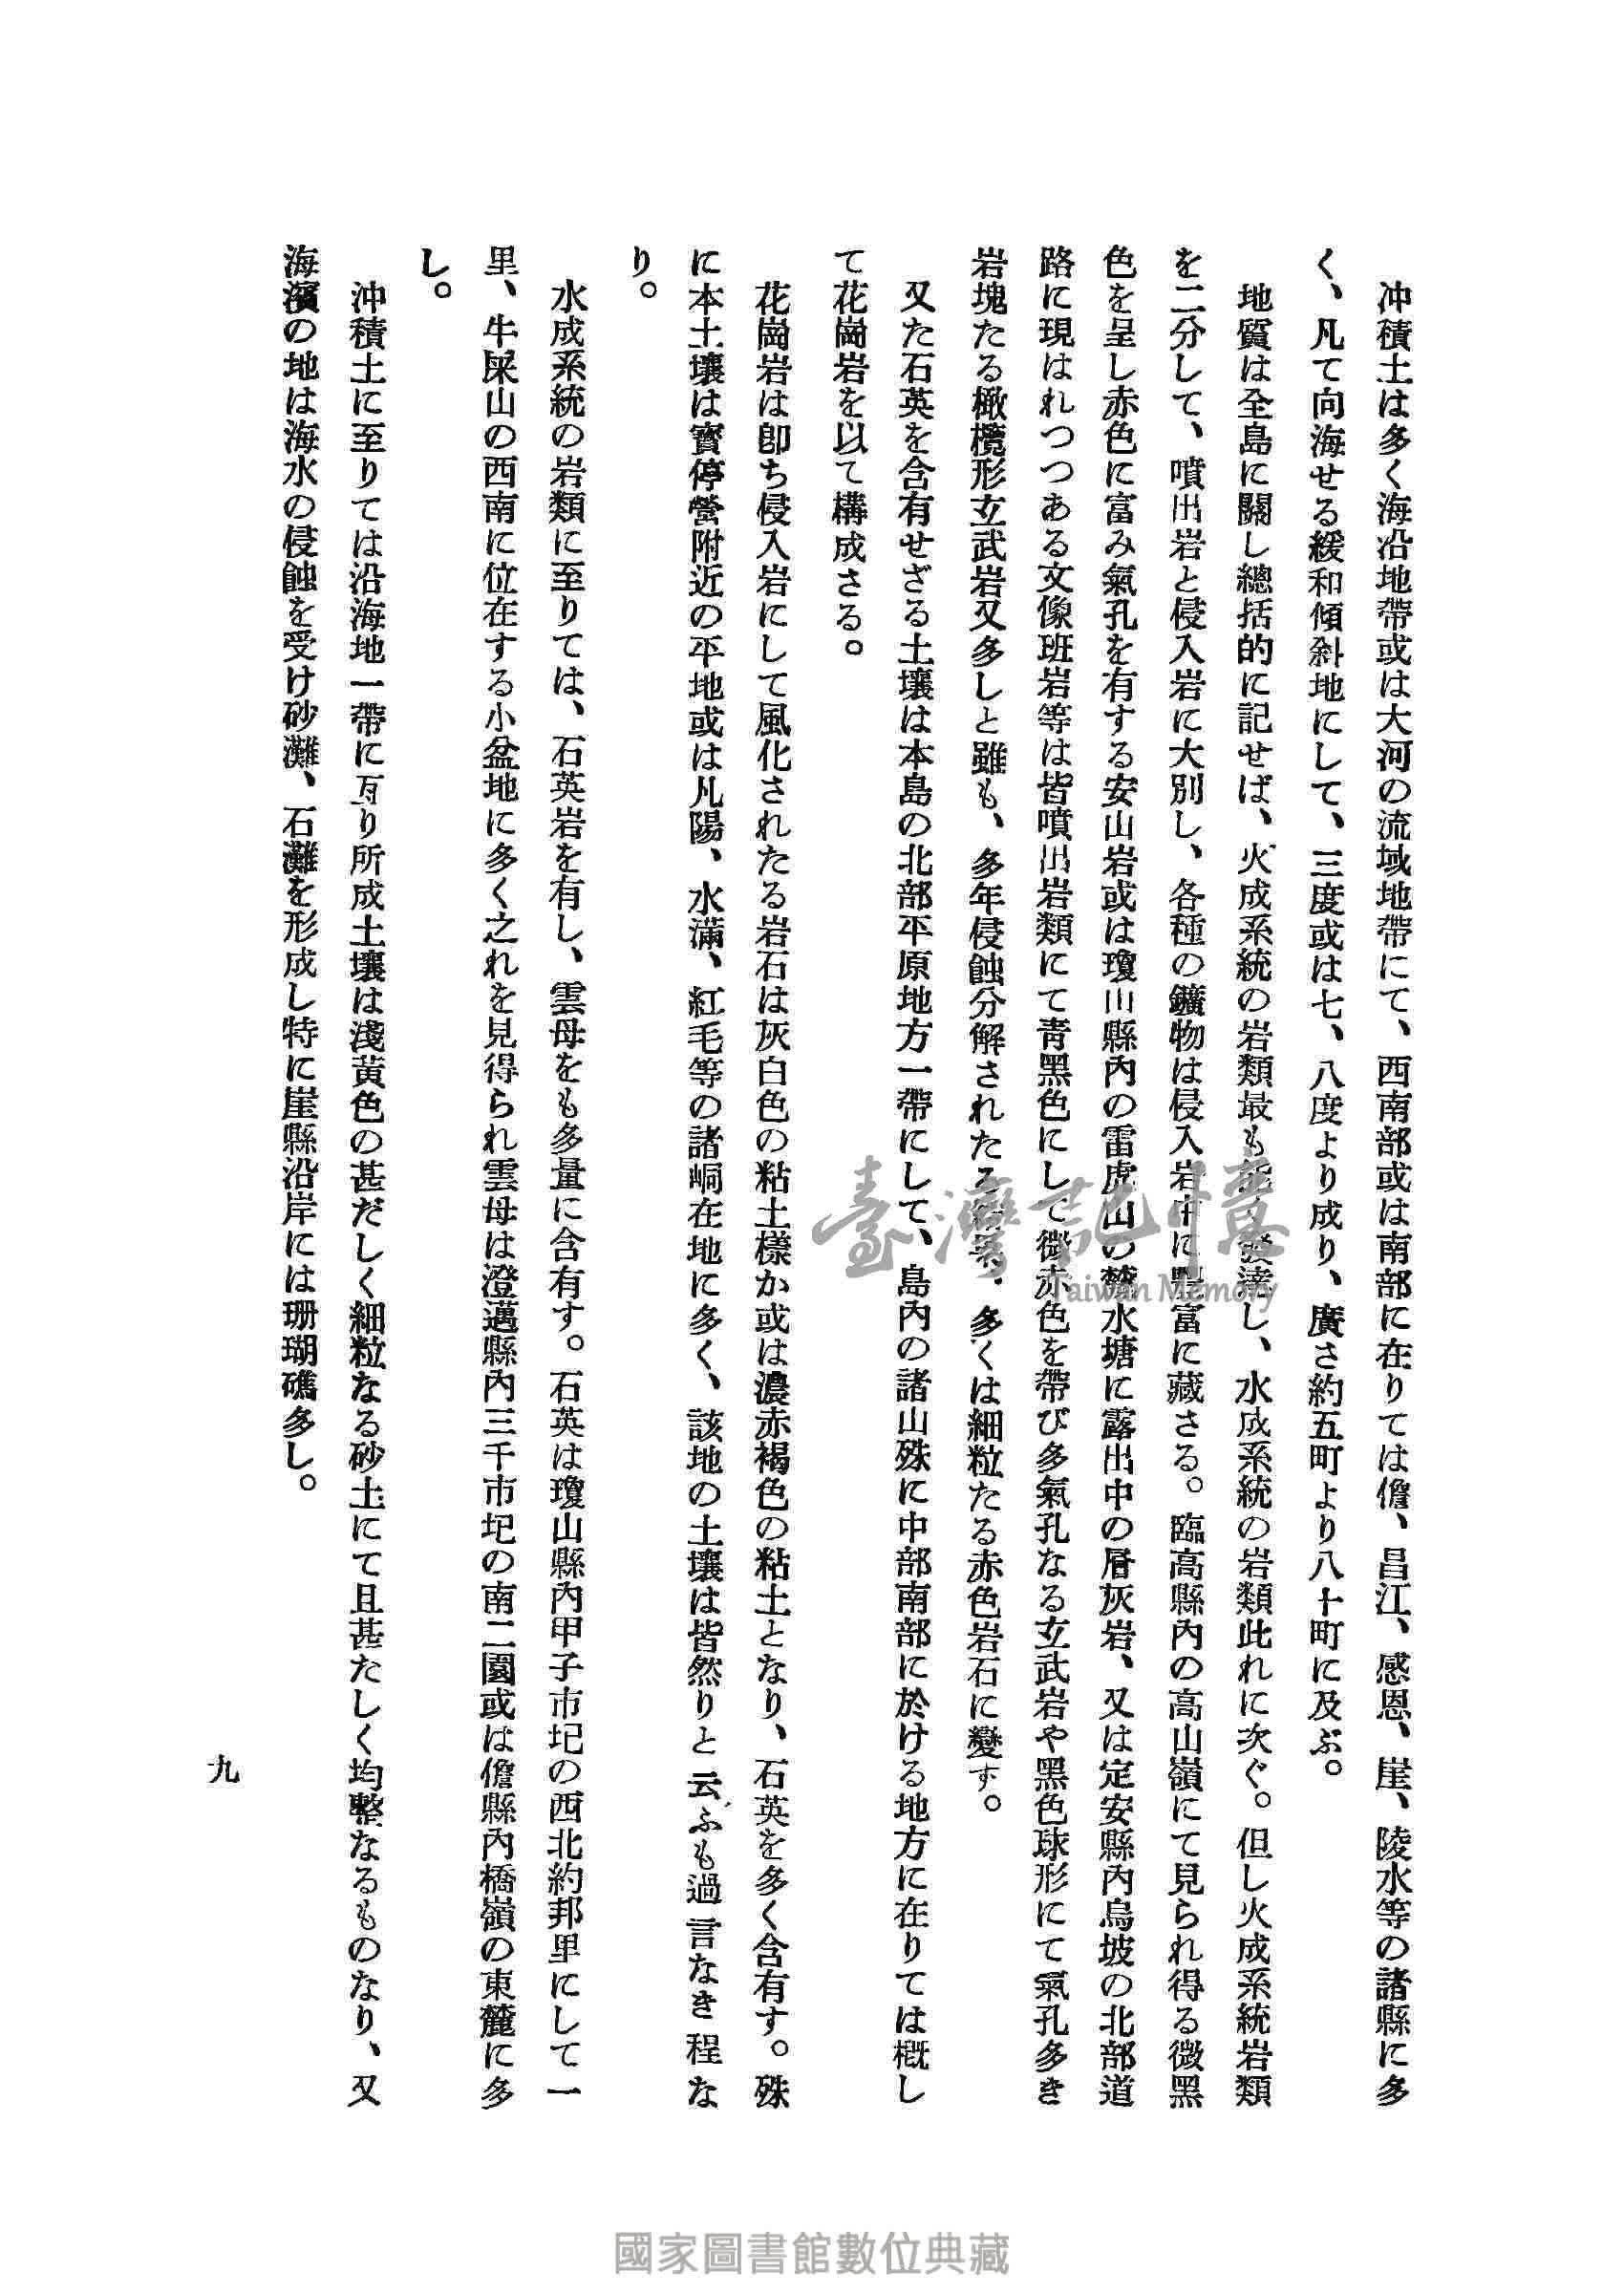 冲積土は多く海沿地帶或は大河の流域地帶にて、西南部或は南部に在りては儋、昌江、感恩、崖、陵水等の諸縣に多
く、凡て向海せる緩和傾斜地にして、三度或は七、八度より成り、廣さ約五町より八十町に及ぶ。
地質は全島に關し總括的に記せば、火成系統の岩類最も能く發達し、水成系統の岩類此れに次ぐ。但し火成系統岩類
を二分して、噴出岩と侵入岩に大別し、各種の鑛物は侵入岩中に豐富に藏さる。臨高縣內の高山嶺にて見られ得る微黑
色を呈し赤色に富み氣孔を有する安山岩或は瓊山縣內の雷虎山の水塘に露出中の層灰岩、又は定安縣內烏坡の北部道
路に現はれつつある文像班岩等は皆噴出岩類にて青黑色にして微赤色を帶び多氣孔なる玄武岩や黑色球形にて氣孔多き
岩塊たる橄欖形玄武岩又多しと雖も、多年侵蝕分解されたる結果、多くは細粒たる赤色岩石に變す。
又た石英を含有せざる土壤は本島の北部平原地方一帶にして、島內の諸山殊に中部南部に於ける地方に在りては槪し
て花崗岩を以て構成さる。
花崗岩は卽ち侵入岩にして風化されたる岩石は灰白色の粘土樣か或は濃赤褐色の粘土となり、石英を多く含有す。殊
に本土壤は寶停營附近の平地或は凡陽、水滿、紅毛等の諸峒在地に多く、該地の土壤は皆然りと云ふも過言なき程な
り。
水成系統の岩類に至りては、石英岩を有し、雲母をも多量に含有す。石英は瓊山縣內甲子市圮の西北約邦里にして一
里、牛屎山の西南に位在する小盆地に多く之れを見得られ雲母は澄邁縣內三千市圮の南二園或は儋縣內橋嶺の東麓に多
し。
沖積土に至りては沿海地一帶に亙り所成土壤は淺黃色の甚だしく細粒なる砂土にて且甚たしく均整なるものなり、又
海濱の地は海水の侵蝕を受け砂灘、石灘を形成し特に崖縣沿岸には珊瑚礁多し。
九
臺灣記憶
Taiwan Memory
國家圖書館數位典藏